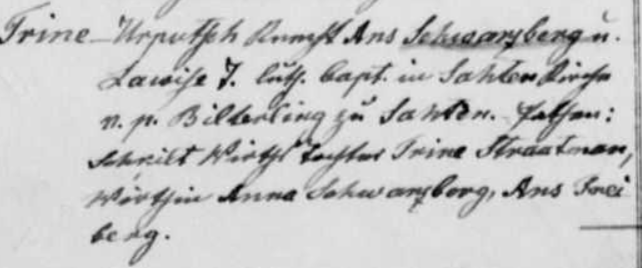 Trine - Urputsch Knecht Ans Schwarzberg u.
Lawise T. luth. bapt. in Sahten Kirche
v. p. Bilterling zu Sahten. Pathen:
Schnilt Wirths Tochter Trine Straatman,
Wirthin Anna Schwarzberg, Ans Frei
berg.